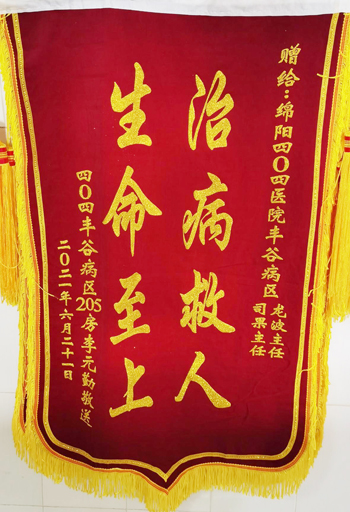 赠给：绵阳四〇四医院丰谷病区
龙波主任
司果主任
治病救人
生命至上
四〇四丰谷病区205房李元勤敬送
二〇二一年六月二十一日